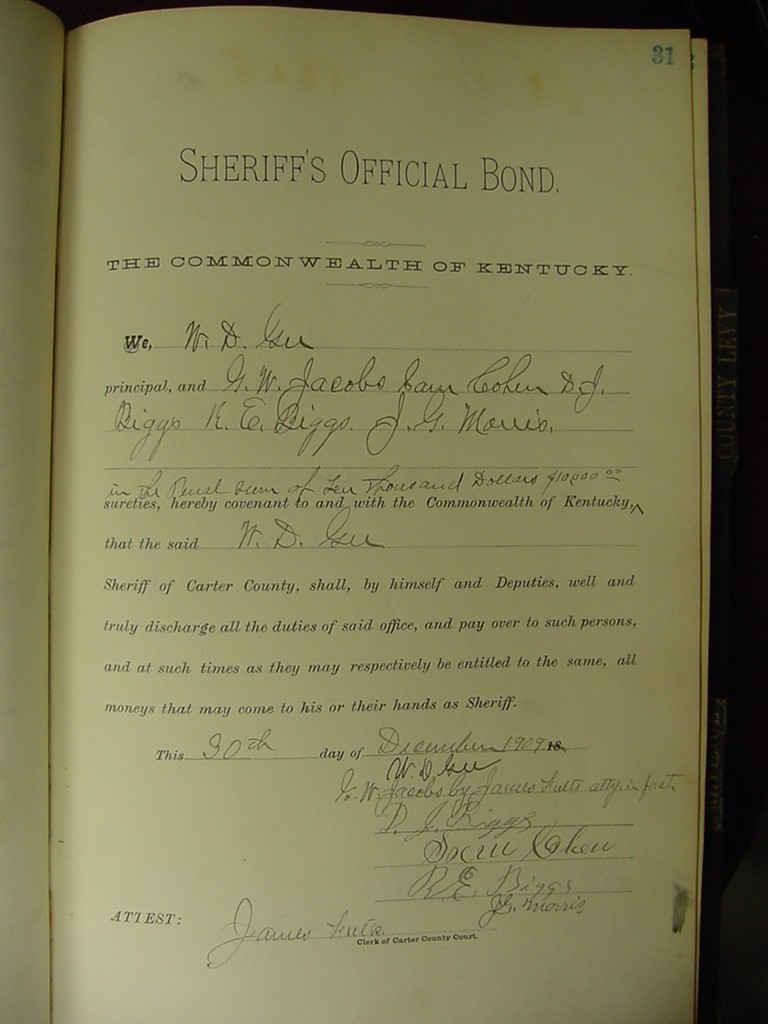 31
SHERIFF'S OFFICIAL BOND.
THE COMMONWEALTH OF KENTUCKY.
We, W. D. Gee
principal, and G. W. Jacobs Sam Cohen D. J.
Biggs R. E. Biggs. J. G. Morris.
in the Penal sum of Ten Thousand Dollars $10,000 00
sureties, hereby covenant to and with the Commonwealth of Kentucky,
that the said W. D. Gee
Sheriff of Carter County, shall, by himself and Deputies, well and
truly discharge all the duties of said office, and pay over to such persons,
and at such times as they may respectively be entitled to the same, all
moneys that may come to his or their hands as Sheriff.
This 30th day of December 1909 18
W. D. Gee
G. W. Jacobs by James atty. in fact.
D. J. Biggs
Sam Cohen
R. E. Biggs
J. G. Morris
ATTEST: James
Clerk of Carter County Court.
COUNTY LEVY